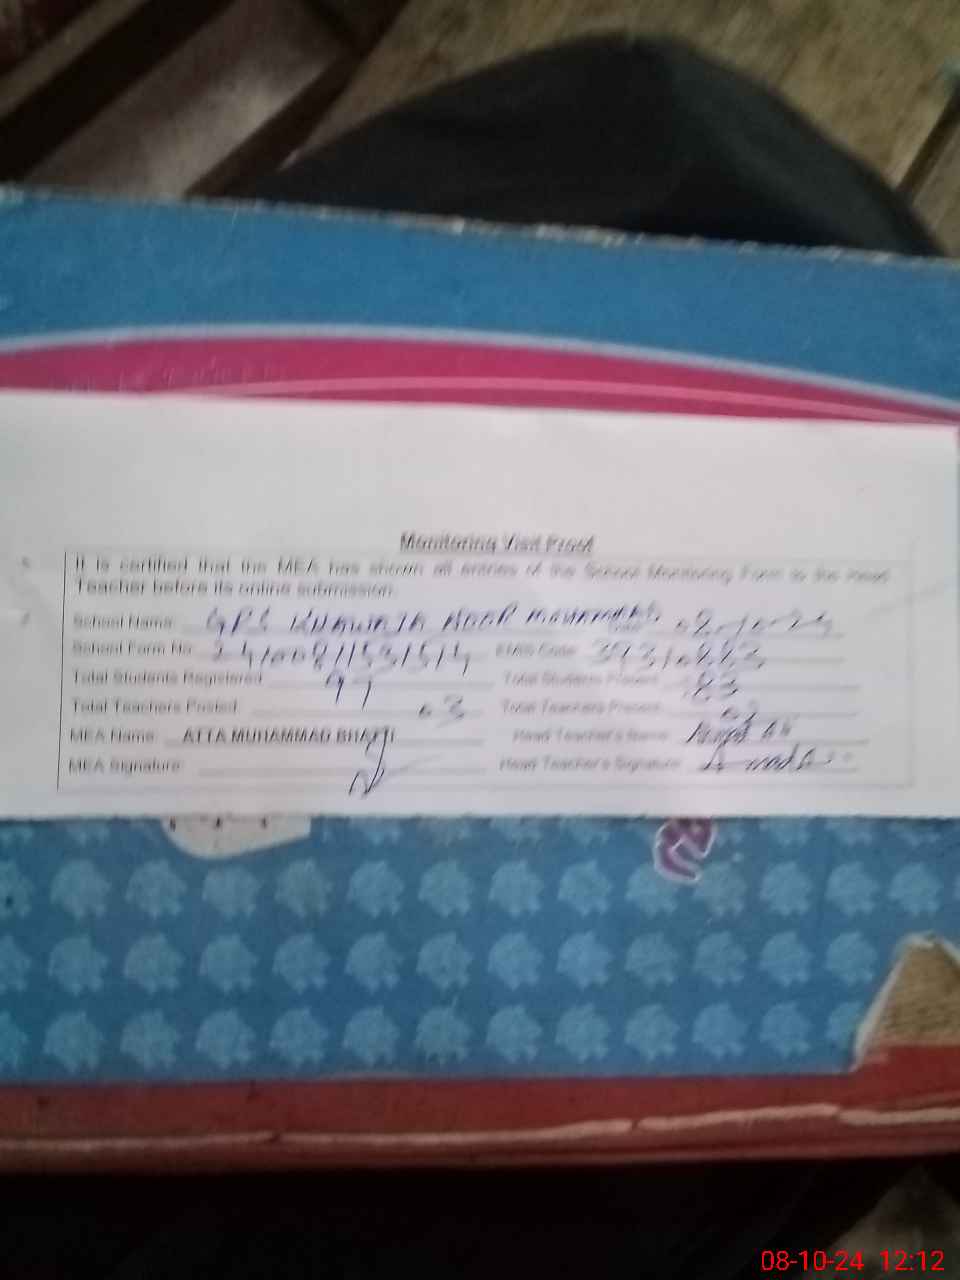 Monitoring Visit Proof
It is certified that the MEA has shown all entries of the School Monitoring Form to the Head
Teacher before its online submission.
School Name: GPS KHAWAJA NOOR MUHAMMAD Date: 08-10-24
School Form No: EMIS Code:
Total Students Registered: 97 Total Students Present: 83
Total Teachers Posted: 03 Total Teachers Present:
MEA Name: ATTA MUHAMMAD BHATTI Head Teacher's Name:
MEA Signature: Head Teacher's Signature:
08-10-24 12:12